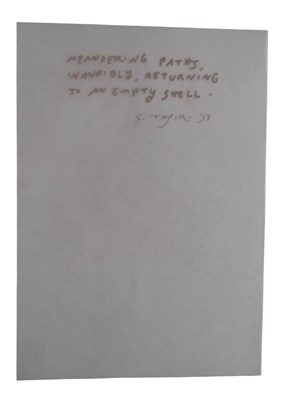 MEANDERING PATHS,
INAUDIBLY, RETURNING
TO AN EMPTY SHELL.
S.